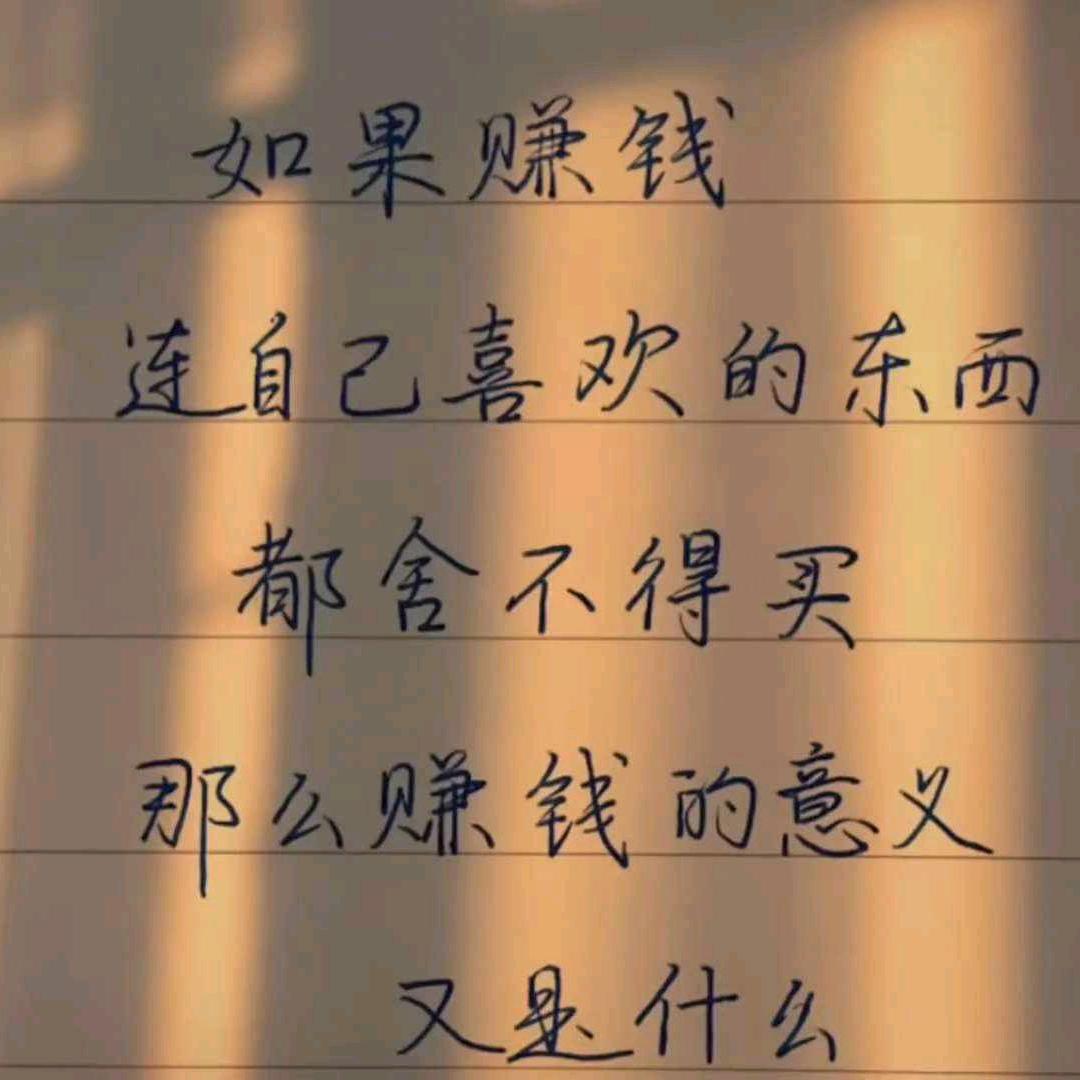 如果赚钱
连自己喜欢的东西
都舍不得买
那么赚钱的意义
又是什么